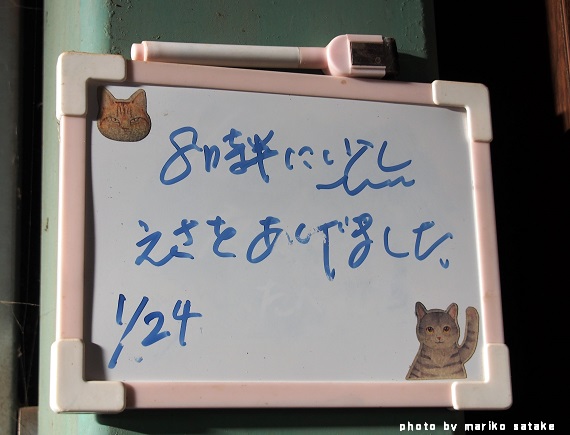 8時半に少し
えさをあげました。
1/24
photo by mariko satake